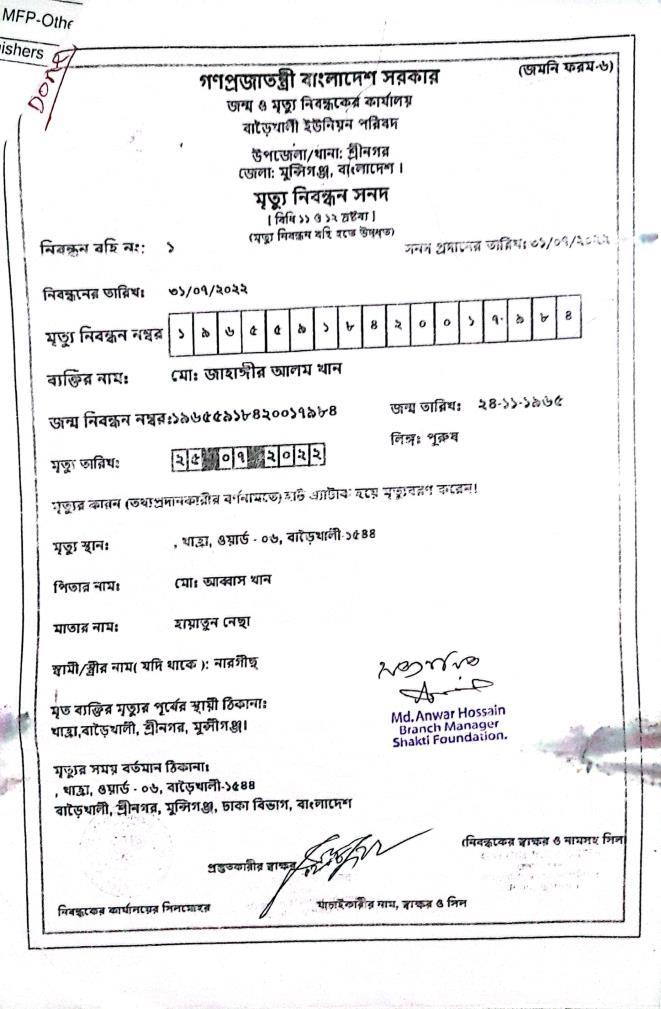 MFP-Othe
ishers
DONA
গণপ্রজাতন্ত্রী বাংলাদেশ সরকার
(জমনি ফরম-৬)
জন্ম ও মৃত্যু নিবন্ধকের কার্যালয়
বাড়ৈখালী ইউনিয়ন পরিষদ
উপজেলা/থানা: শ্রীনগর
জেলা: মুন্সিগঞ্জ, বাংলাদেশ ।
মৃত্যু নিবন্ধন সনদ
[ বিধি ১১ ও ১২ দ্রষ্টব্য ]
(মৃত্যু নিবন্ধন বহি হতে উদ্ধৃত)
নিবন্ধন বহি নং: ১
সনদ প্রদানের তারিখ: ৩১/০৭/২০২২
নিবন্ধনের তারিখঃ ৩১/০৭/২০২২
মৃত্যু নিবন্ধন নম্বর ১ ৯ ৬ ৫ ৫ ৯ ১ ৮ ৪ ২ ০ ০ ১ ৭ ৯ ৮ ৪
ব্যক্তির নাম: মো: জাহাঙ্গীর আলম খান
জন্ম নিবন্ধন নম্বর:১৯৬৫৫৯১৮৪২০০১৭৯৮৪ জন্ম তারিখ: ২৪-১১-১৯৬৫
লিঙ্গ: পুরুষ
মৃত্যু তারিখ: ২৫ ০৭ ২০২২
মৃত্যুর কারন (তথ্যপ্রদানকারীর বর্ণনামতে) হার্ট এ্যাটাক হয়ে মৃত্যুবরণ করেন।
মৃত্যু স্থান: , খাহ্রা, ওয়ার্ড - ০৬, বাড়ৈখালী-১৫৪৪
পিতার নাম: মো: আব্বাস খান
মাতার নাম: হায়াতুন নেছা
স্বামী/স্ত্রীর নাম( যদি থাকে ): নারগীছ
মৃত ব্যক্তির মৃত্যুর পূর্বের স্থায়ী ঠিকানা:
খাহ্রা,বাড়ৈখালী, শ্রীনগর, মুন্সীগঞ্জ।
Md. Anwar Hossain
Branch Manager
Shakti Foundation.
মৃত্যুর সময় বর্তমান ঠিকানা:
, খাহ্রা, ওয়ার্ড - ০৬, বাড়ৈখালী-১৫৪৪
বাড়ৈখালী, শ্রীনগর, মুন্সিগঞ্জ, ঢাকা বিভাগ, বাংলাদেশ
প্রস্তুতকারীর স্বাক্ষর
(নিবন্ধকের স্বাক্ষর ও নামসহ সিল)
নিবন্ধকের কার্যালয়ের সিলমোহর
যাচাইকারীর নাম, স্বাক্ষর ও সিল